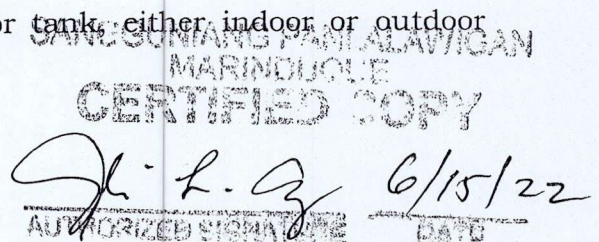 or tank, either indoor or outdoor
SANGGUNIANG PANLALAWIGAN
MARINDUQUE
CERTIFIED COPY
6/15/22
AUTHORIZED SIGNATURE DATE